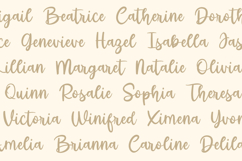 igail Beatrice Catherine Doroth
ce Genevieve Hazel Isabella Jas
Lillian Margaret Natalie Olivia
Quinn Rosalie Sophia Theresa
Victoria Winifred Ximena Yvon
Amelia Brianna Caroline Delila